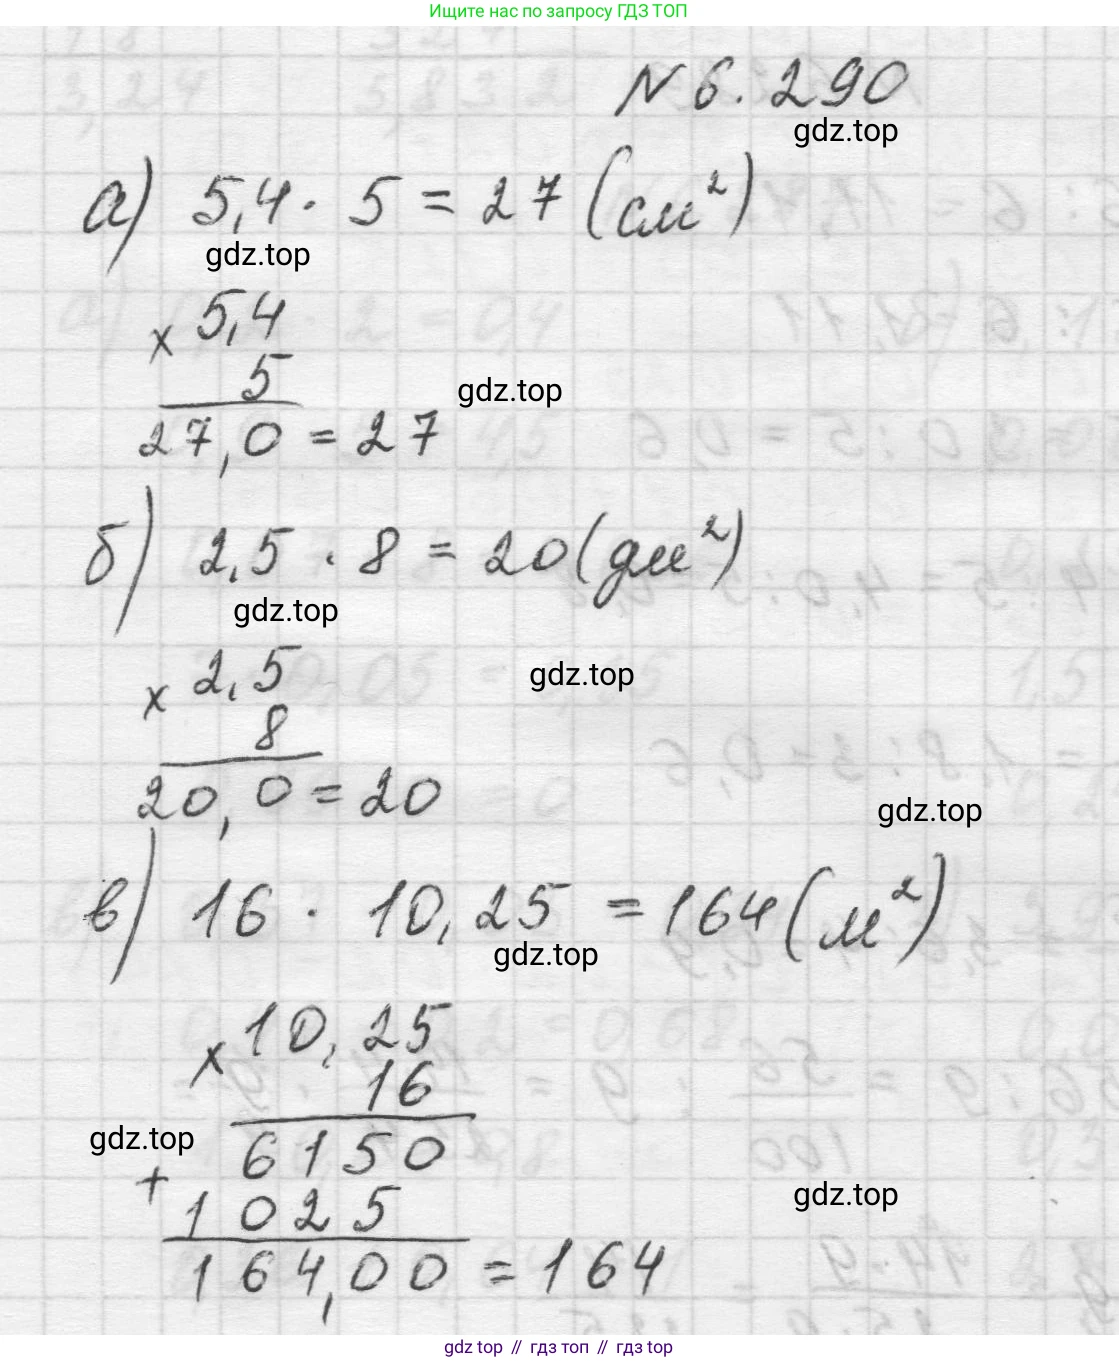 Ищите нас по запросу ГДЗ ТОП
№ 6.290
gdz.top
а) 5,4 · 5 = 27 (см²)
gdz.top
× 5,4
5
gdz.top
27,0 = 27
б) 2,5 · 8 = 20 (дм²)
gdz.top
× 2,5
gdz.top
8
20,0 = 20
gdz.top
в) 16 · 10,25 = 164 (м²)
gdz.top
× 10,25
16
gdz.top
6150
+ 1025
gdz.top
164,00 = 164
gdz top // гдз топ // gdz top